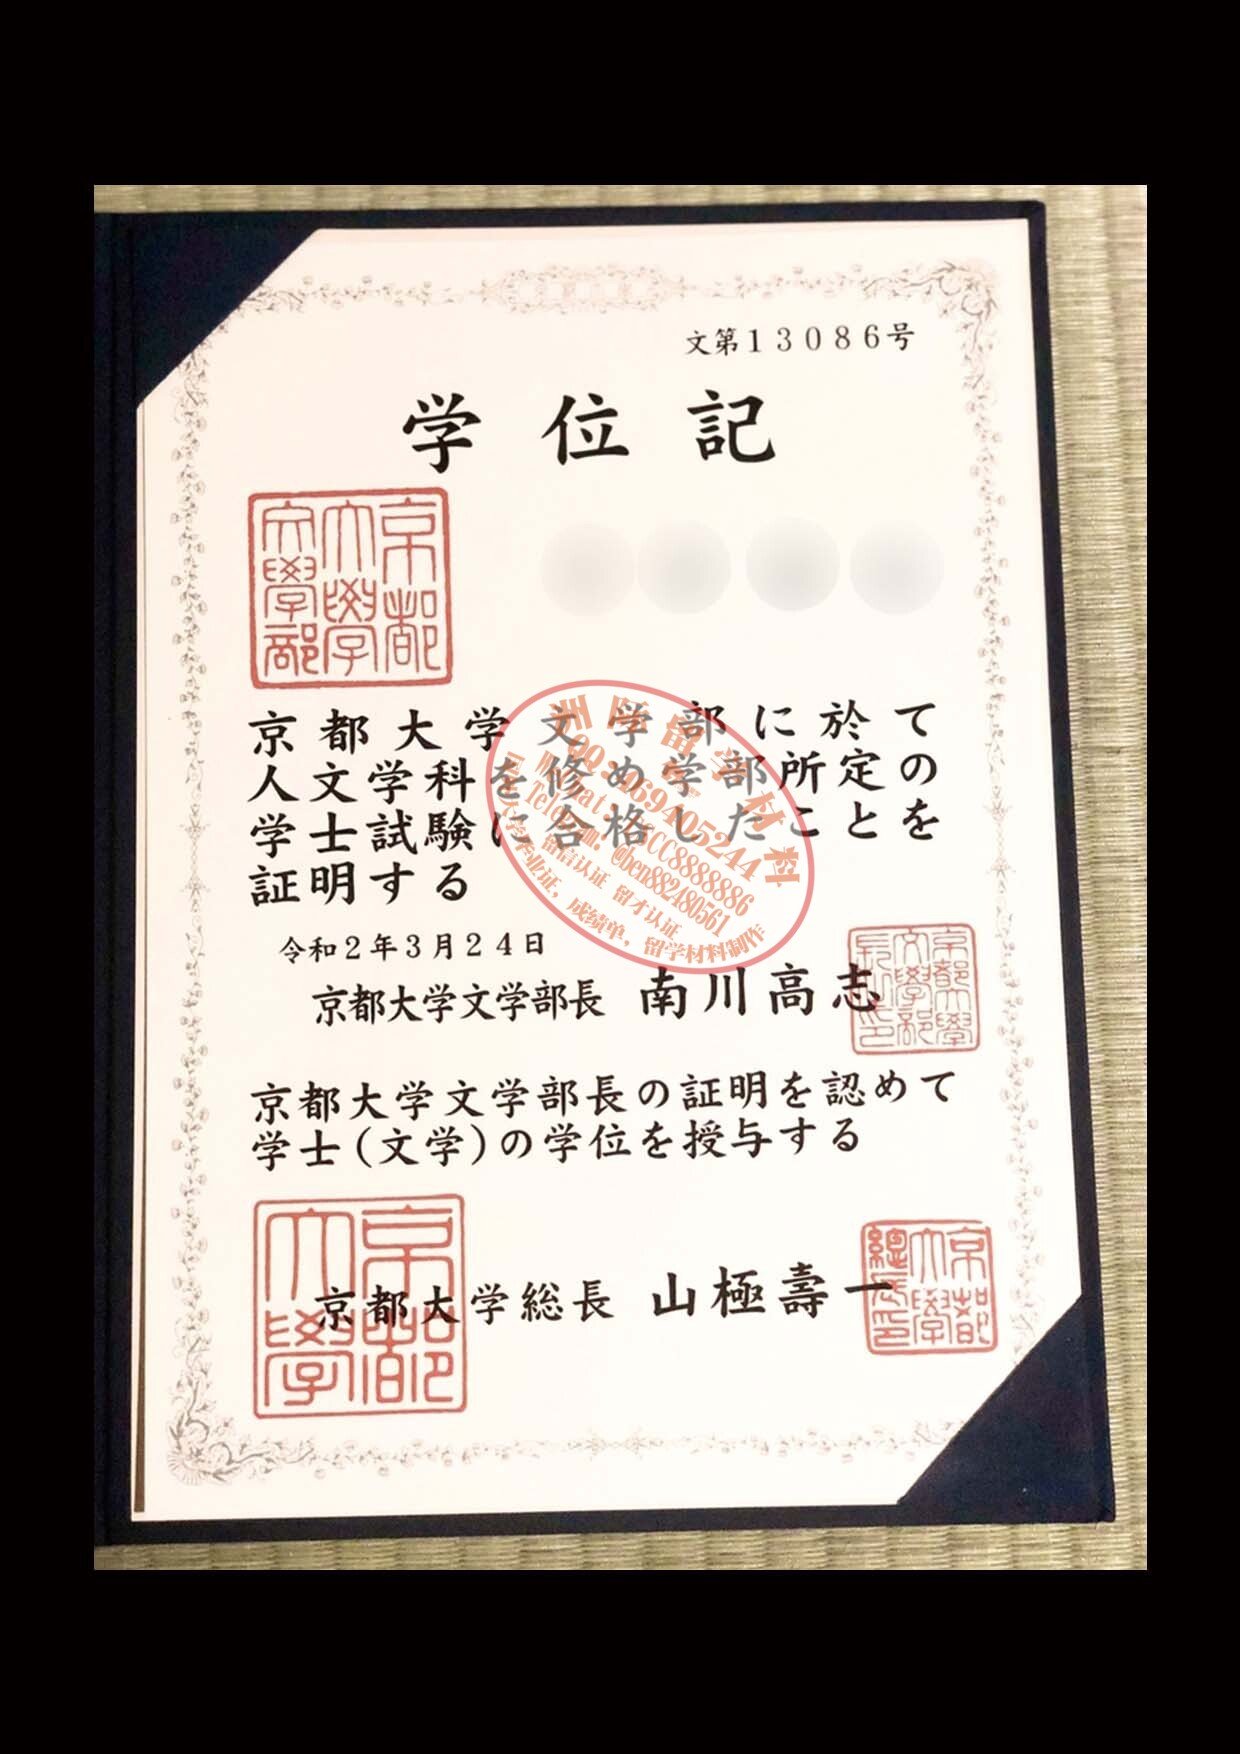 文第13086号
学位記
京都大学文学部
京都大学文学部に於て
人文学科を修め学部所定の
学士試験に合格したことを
証明する
令和2年3月24日
京都大学文学部長 南川高志
京都大学文学部長の証明を認めて
学士(文学)の学位を授与する
京都大学総長 山極壽一
留学材料
Telegram: @bcn882480561
留信认证 留才认证
毕业证, 成绩单, 留学材料制作